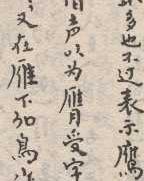 多也不过表示鹰
声以为膺受字
又在雁下加鳥